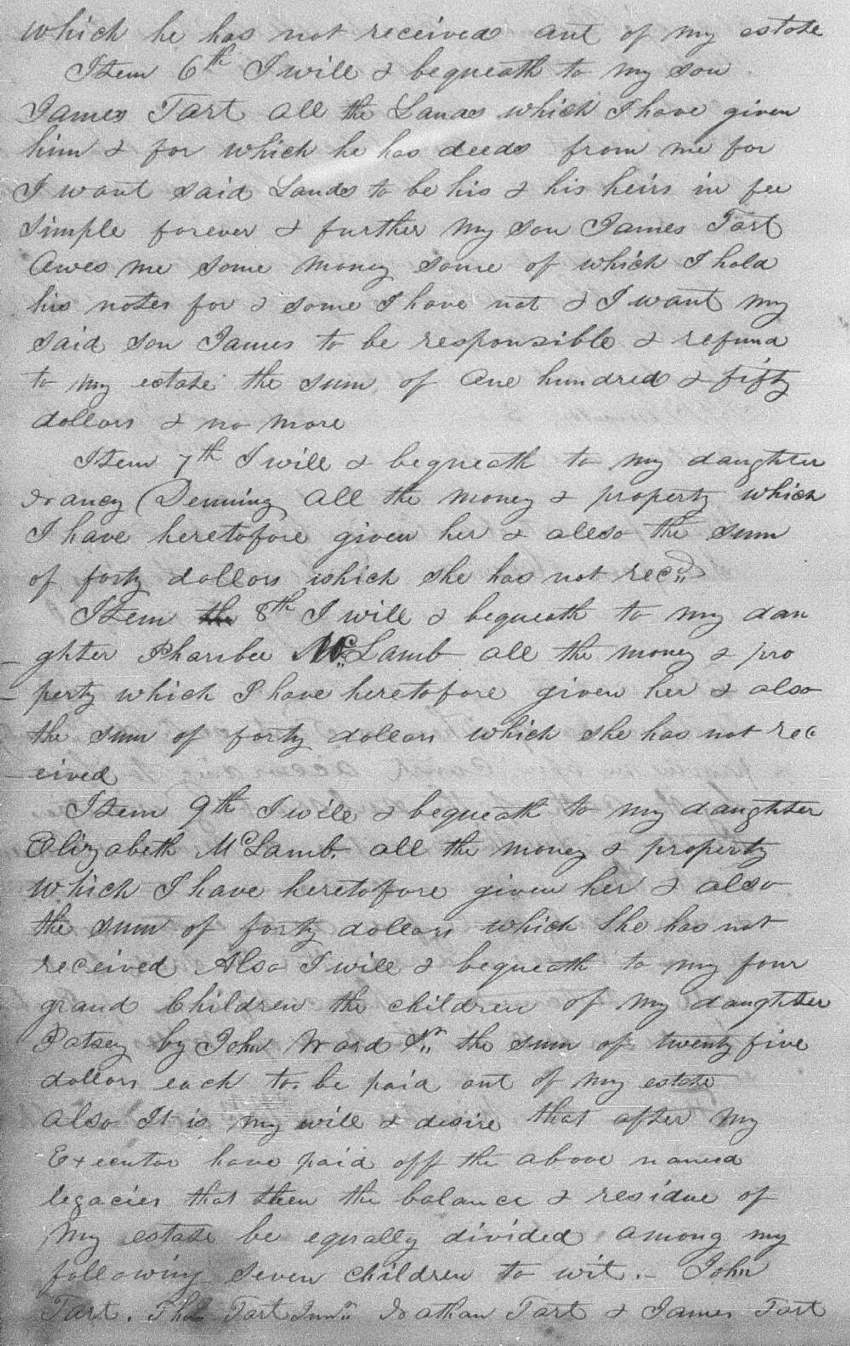 which he has not received out of my estate
Item 6th I will & bequeath to my son
James Tart all the Lands which I have given
him & for which he has deeds from me for
I want said Lands to be his & his heirs in fee
simple forever & further my son James Tart
Awes me some money some of which I hold
his notes for & some I have not & I want my
said son James to be responsible & refund
to my estate the sum of one hundred & fifty
dollars & no more
Item 7th I will & bequeath to my daughter
Nancy Denning all the money & property which
I have heretofore given her & allso the sum
of forty dollars which she has not recd
Item th 8th I will & bequeath to my dau
ghter Pharibee McLamb all the money & pro
perty which I have heretofore given her & also
the sum of forty dollars which she has not rec
eived
Item 9th I will & bequeath to my daughter
Elizabeth McLamb. all the money & property
which I have heretofore given her & also
the sum of forty dollars which she has not
received Also I will & bequeath to my four
grand Children the children of my daughter
Patsey by John Ward Sr the sum of twenty five
dollars each to be paid out of my estate
also It is my will & desire that after my
Executor have paid off the above named
legacies that then the balance & residue of
my estate be equally divided among my
following seven children to wit. - John
Tart. Tho Tart Junr Nathan Tart & James Tart